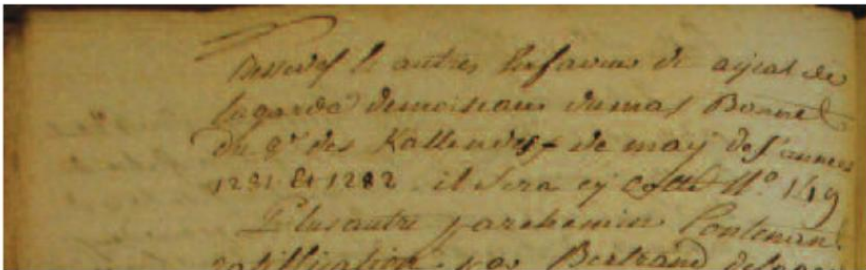 autres En faveur de de
lagarde demoiseau du mas Bonnet
du 9e des Kallendes de may de l'année
1281 Et 1282. il sera cy cotté N.o 149
Plus autre parchemin Contenan
ratiffication par Bertrand